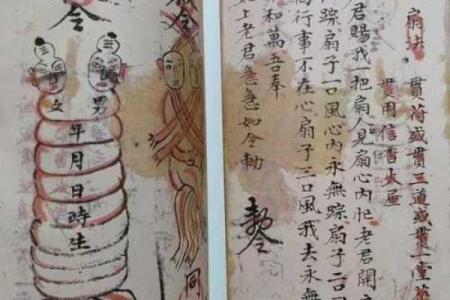 扇法
貫符或貫三道或貫一
貫用信香火
君賜我一把扇人見扇心內忙老君開
踪扇子一口風心內永無踪扇子二口
行事不在心扇子三口風我去永無
和萬吾奉
上老君急急如令勅
令
同
令
男
女
年月日時生